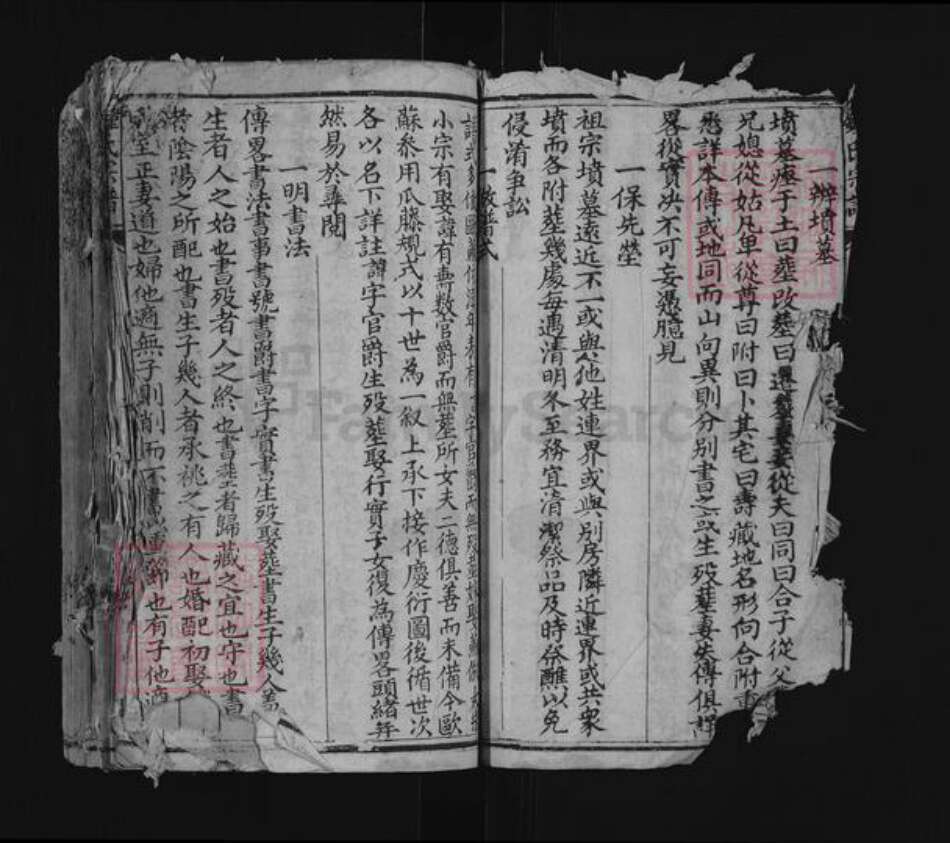 一辨墳墓
墳墓瘞于土曰塟改塟曰遷塟妻從夫曰同曰合子從父
兄媳從姑凡卑從尊曰附曰卜其宅曰壽藏地名形向合附書
悉詳本傳或地同而山向異則分别書之或生殁塟妻失傳俱詳
畧從實决不可妄憑臆見
一保先塋
祖宗墳墓遠近不一或與他姓連界或與别房隣近連界或共衆
墳而各附塟幾處每遇清明冬至務宜清潔祭品及時祭醮以免
侵淆争訟
小宗有娶諱有壽數官爵而無塟所女夫二德俱善而未備今歐
蘇叅用瓜藤規式以十世為一叙上承下接作慶衍圖後循世次
各以名下詳註諱字官爵生殁塟娶行實子女復為傳畧頭緒井
然易於尋閱
一明書法
傳畧書法書事書號書爵書字書實書生殁娶塟書生子幾人蓋
生者人之始也書殁者人之終也書塟者歸藏之宜也守也書
者陰陽之所配也書生子幾人者承祧之有人也婚配初娶
至正妻道也婦他適無子則削而不書以 也有子他適